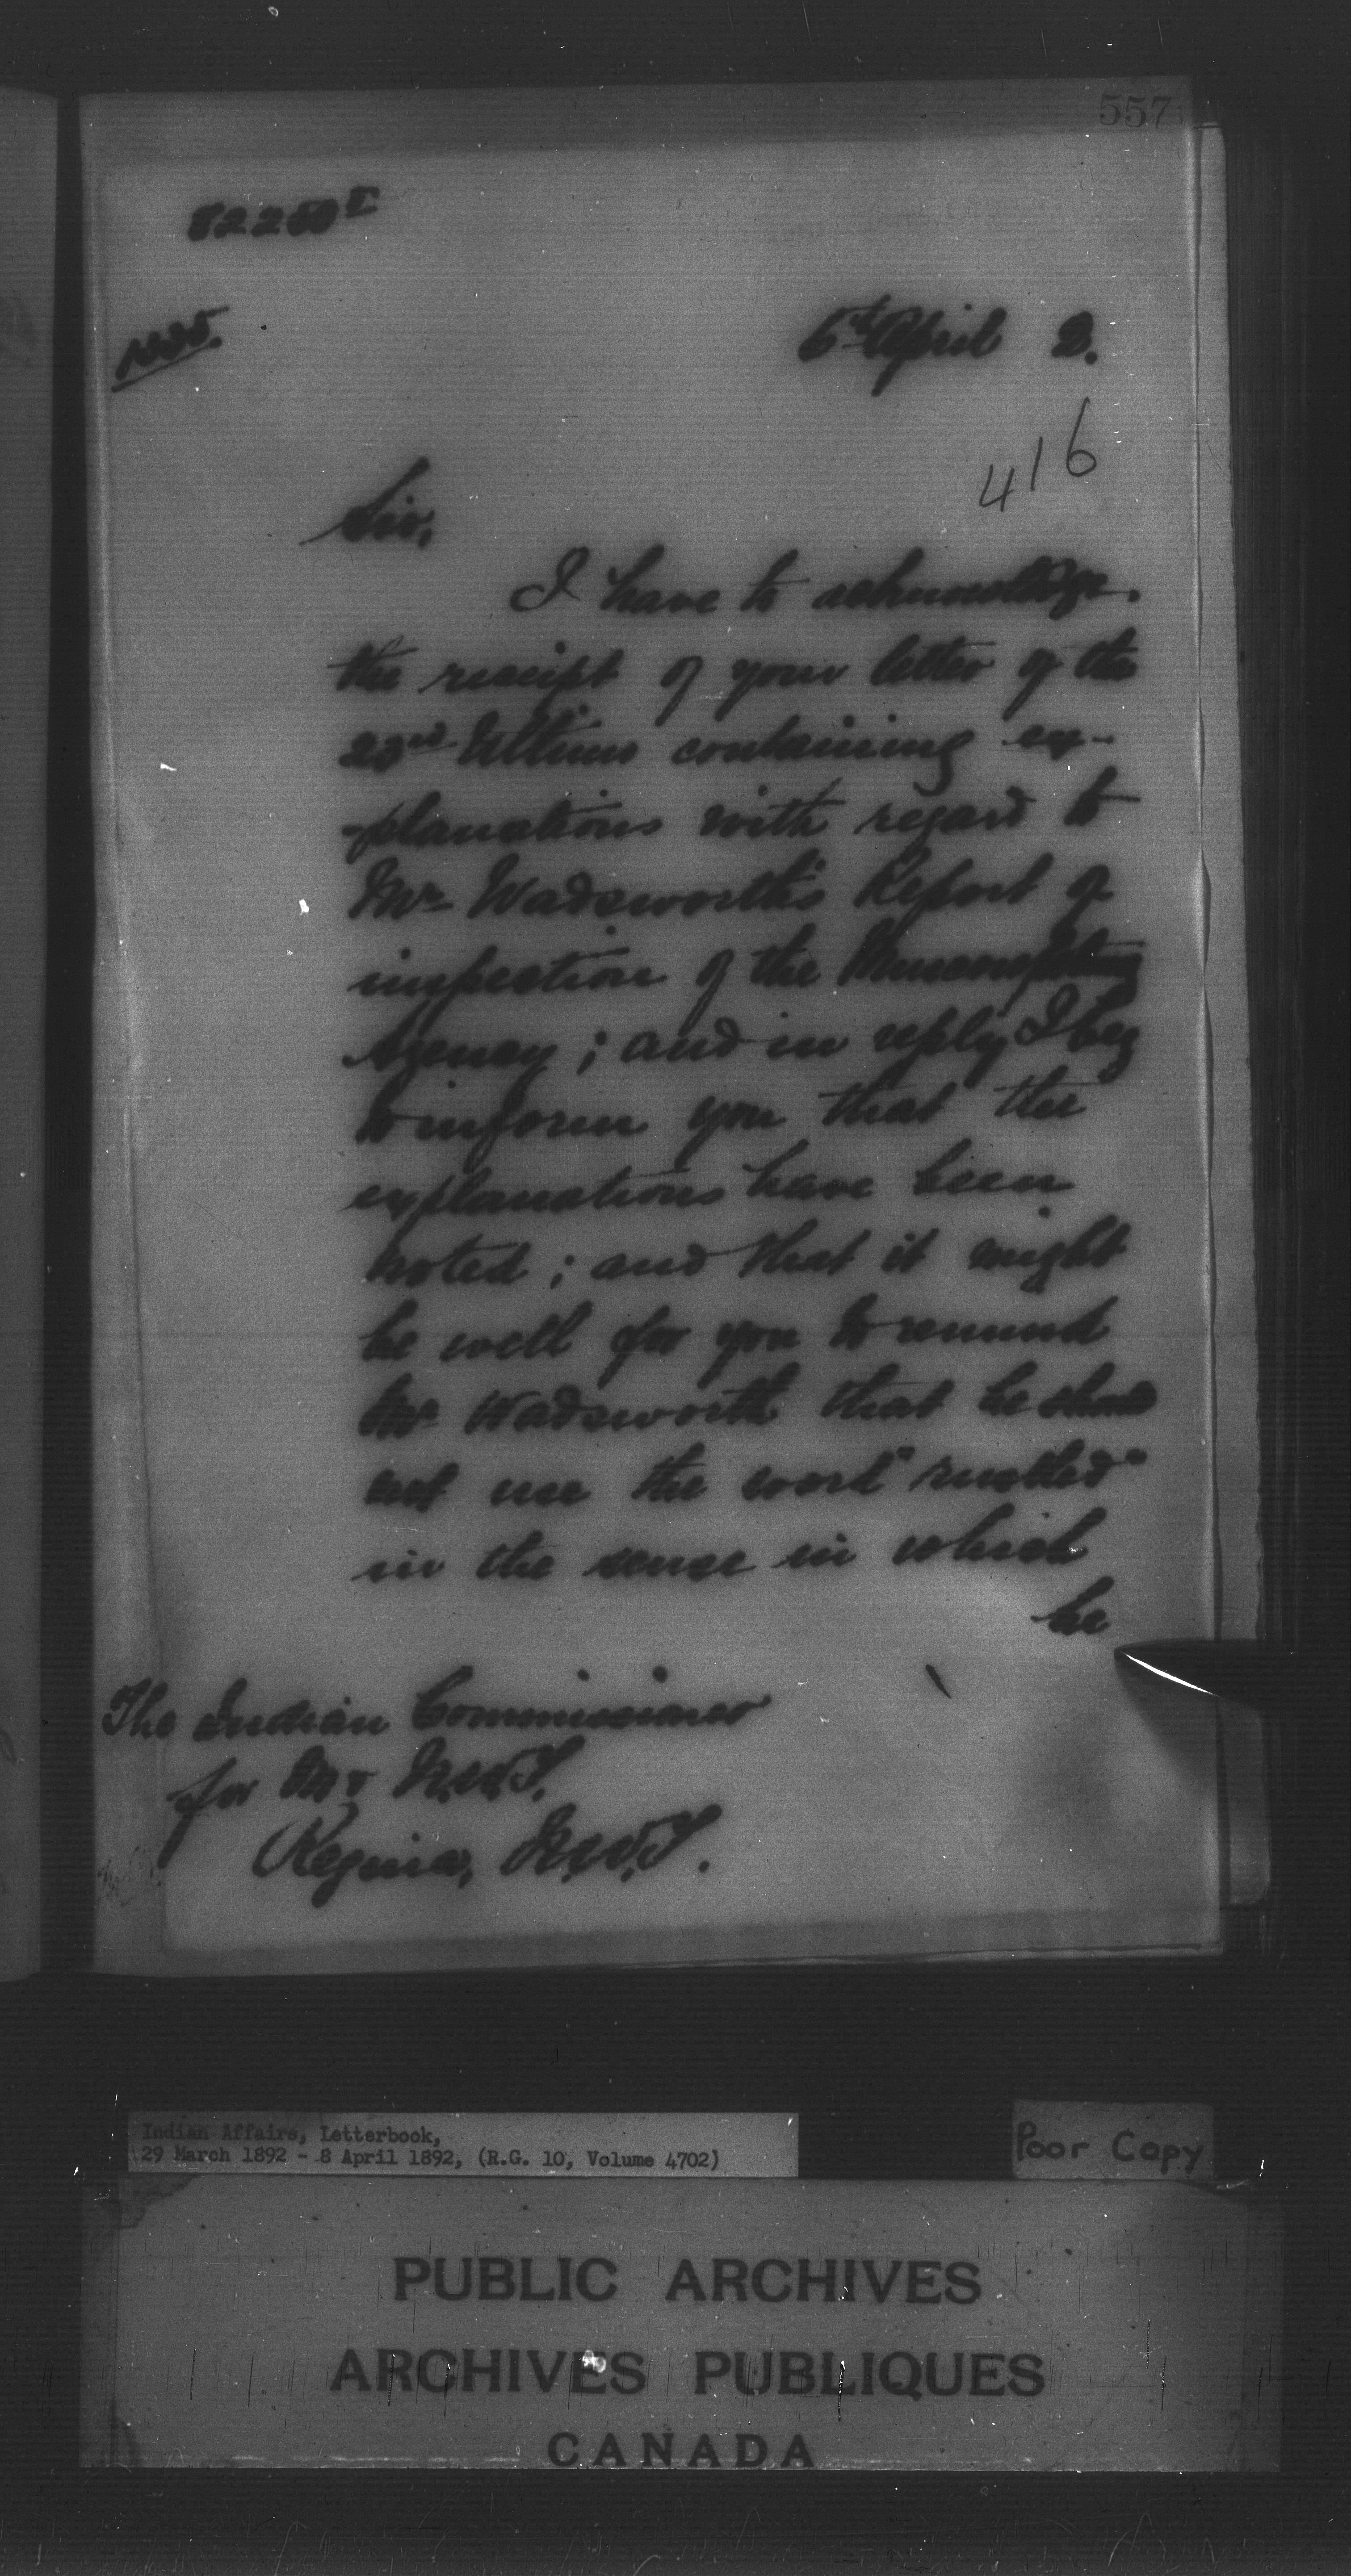 557
6th April 2.
416
Sir,
I have to acknowledge
the receipt of your letter of the
23rd Ultimo containing ex-
-planations with regard to
Mr Wadsworth's Report of
inspection of the Muscowpetung
Agency; and in reply I beg
to inform you that the
explanations have been
noted; and that it might
be well for you to remind
Mr Wadsworth that he
not use the word "rustled"
in the sense in which
he
The Indian Commissioner
for N.W.T.
Regina, N.W.T.
Indian Affairs, Letterbook,
29 March 1892 - 8 April 1892, (R.G. 10, Volume 4702)
Poor Copy
PUBLIC ARCHIVES
ARCHIVES PUBLIQUES
CANADA